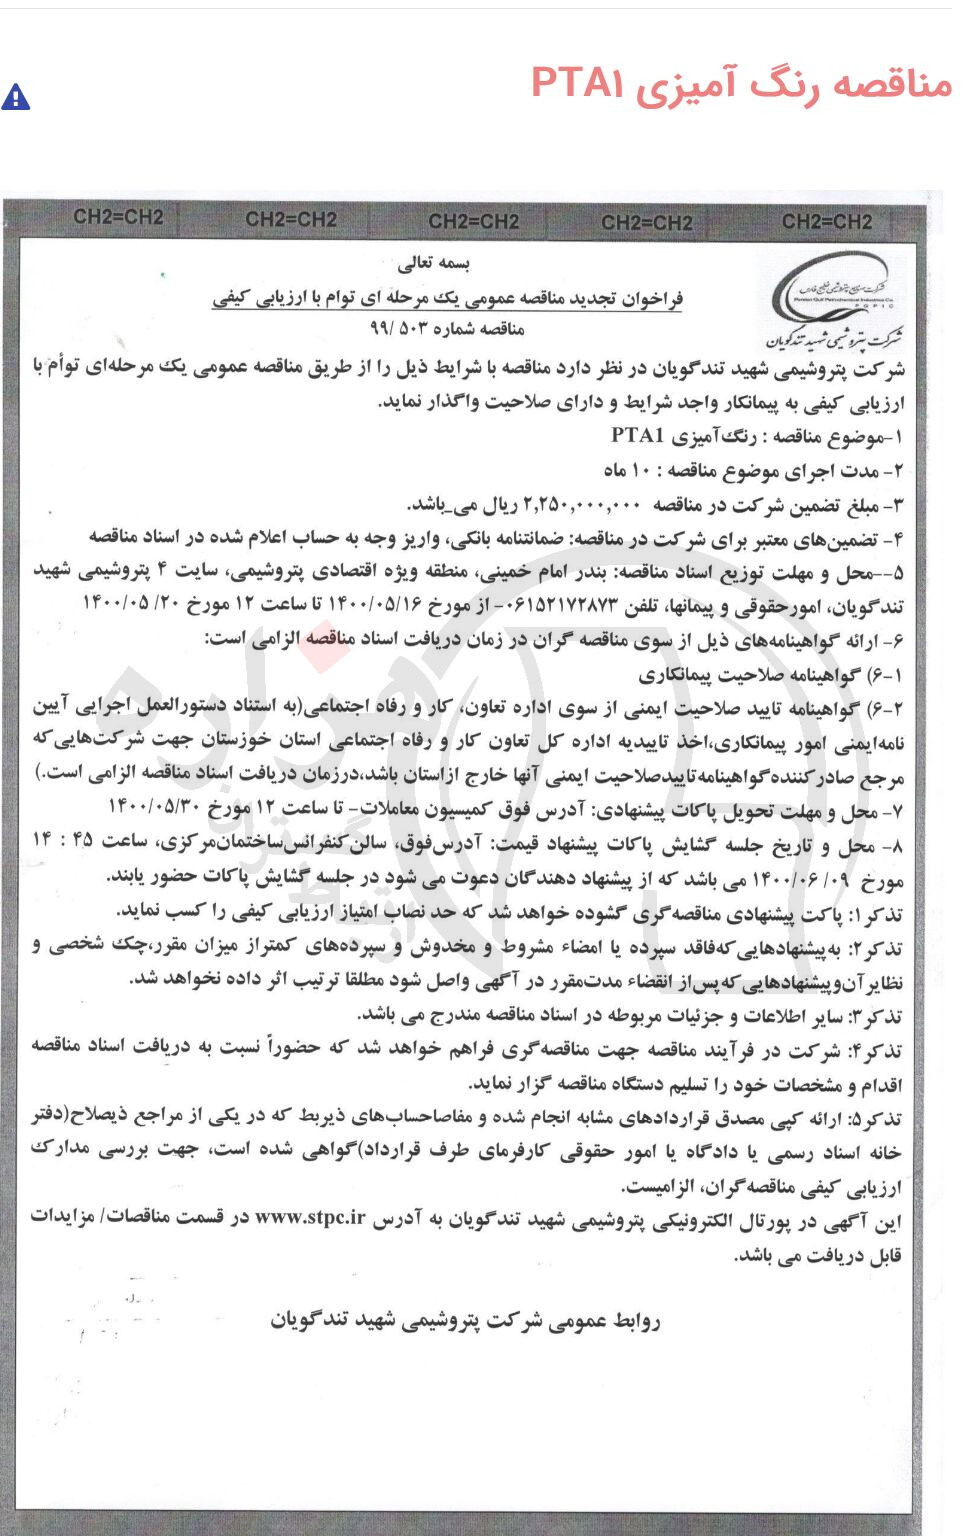 مناقصه رنگ آمیزی PTA۱
CH2=CH2 CH2=CH2 CH2=CH2 CH2=CH2 CH2=CH2
شرکت صنایع پتروشیمی خلیج فارس
Persian Gulf Petrochemical Industries Co.
P G P I C
شرکت پتروشیمی شهید تندگویان
بسمه تعالی
فراخوان تجدید مناقصه عمومی یک مرحله ای توام با ارزیابی کیفی
مناقصه شماره ۵۰۳ /۹۹
شرکت پتروشیمی شهید تندگویان در نظر دارد مناقصه با شرایط ذیل را از طریق مناقصه عمومی یک مرحله‌ای توأم با
ارزیابی کیفی به پیمانکار واجد شرایط و دارای صلاحیت واگذار نماید.
۱-موضوع مناقصه : رنگ‌آمیزی PTA1
۲- مدت اجرای موضوع مناقصه : ۱۰ ماه
۳- مبلغ تضمین شرکت در مناقصه ۲,۲۵۰,۰۰۰,۰۰۰ ریال می_باشد.
۴- تضمین‌های معتبر برای شرکت در مناقصه: ضمانتنامه بانکی، واریز وجه به حساب اعلام شده در اسناد مناقصه
۵--محل و مهلت توزیع اسناد مناقصه: بندر امام خمینی، منطقه ویژه اقتصادی پتروشیمی، سایت ۴ پتروشیمی شهید
تندگویان، امورحقوقی و پیمانها، تلفن ۰۶۱۵۲۱۷۲۸۷۳- از مورخ ۱۴۰۰/۰۵/۱۶ تا ساعت ۱۲ مورخ ۲۰/ ۱۴۰۰/۰۵
۶- ارائه گواهینامه‌های ذیل از سوی مناقصه گران در زمان دریافت اسناد مناقصه الزامی است:
۶-۱) گواهینامه صلاحیت پیمانکاری
۶-۲) گواهینامه تایید صلاحیت ایمنی از سوی اداره تعاون، کار و رفاه اجتماعی(به استناد دستورالعمل اجرایی آیین
نامه‌ایمنی امور پیمانکاری،اخذ تاییدیه اداره کل تعاون کار و رفاه اجتماعی استان خوزستان جهت شرکت‌هایی‌که
مرجع صادرکننده‌گواهینامه‌تاییدصلاحیت ایمنی آنها خارج ازاستان باشد،درزمان دریافت اسناد مناقصه الزامی است.)
۷- محل و مهلت تحویل پاکات پیشنهادی: آدرس فوق کمیسیون معاملات- تا ساعت ۱۲ مورخ ۱۴۰۰/۰۵/۳۰
۸- محل و تاریخ جلسه گشایش پاکات پیشنهاد قیمت: آدرس‌فوق، سالن‌کنفرانس‌ساختمان‌مرکزی، ساعت ۴۵ : ۱۴
مورخ ۰۹/ ۱۴۰۰/۰۶ می باشد که از پیشنهاد دهندگان دعوت می شود در جلسه گشایش پاکات حضور یابند.
تذکر۱: پاکت پیشنهادی مناقصه‌گری گشوده خواهد شد که حد نصاب امتیاز ارزیابی کیفی را کسب نماید.
تذکر۲: به‌پیشنهادهایی‌که‌فاقد سپرده یا امضاء مشروط و مخدوش و سپرده‌های کمتراز میزان مقرر،چک شخصی و
نظایرآن‌وپیشنهادهایی‌که‌پس‌از انقضاء مدت‌مقرر در آگهی واصل شود مطلقا ترتیب اثر داده نخواهد شد.
تذکر۳: سایر اطلاعات و جزئیات مربوطه در اسناد مناقصه مندرج می باشد.
تذکر۴: شرکت در فرآیند مناقصه جهت مناقصه‌گری فراهم خواهد شد که حضوراً نسبت به دریافت اسناد مناقصه
اقدام و مشخصات خود را تسلیم دستگاه مناقصه گزار نماید.
تذکر۵: ارائه کپی مصدق قراردادهای مشابه انجام شده و مفاصاحساب‌های ذیربط که در یکی از مراجع ذیصلاح(دفتر
خانه اسناد رسمی یا دادگاه یا امور حقوقی کارفرمای طرف قرارداد)گواهی شده است، جهت بررسی مدارک
ارزیابی کیفی مناقصه‌گران، الزامیست.
این آگهی در پورتال الکترونیکی پتروشیمی شهید تندگویان به آدرس www.stpc.ir در قسمت مناقصات/ مزایدات
قابل دریافت می باشد.
روابط عمومی شرکت پتروشیمی شهید تندگویان